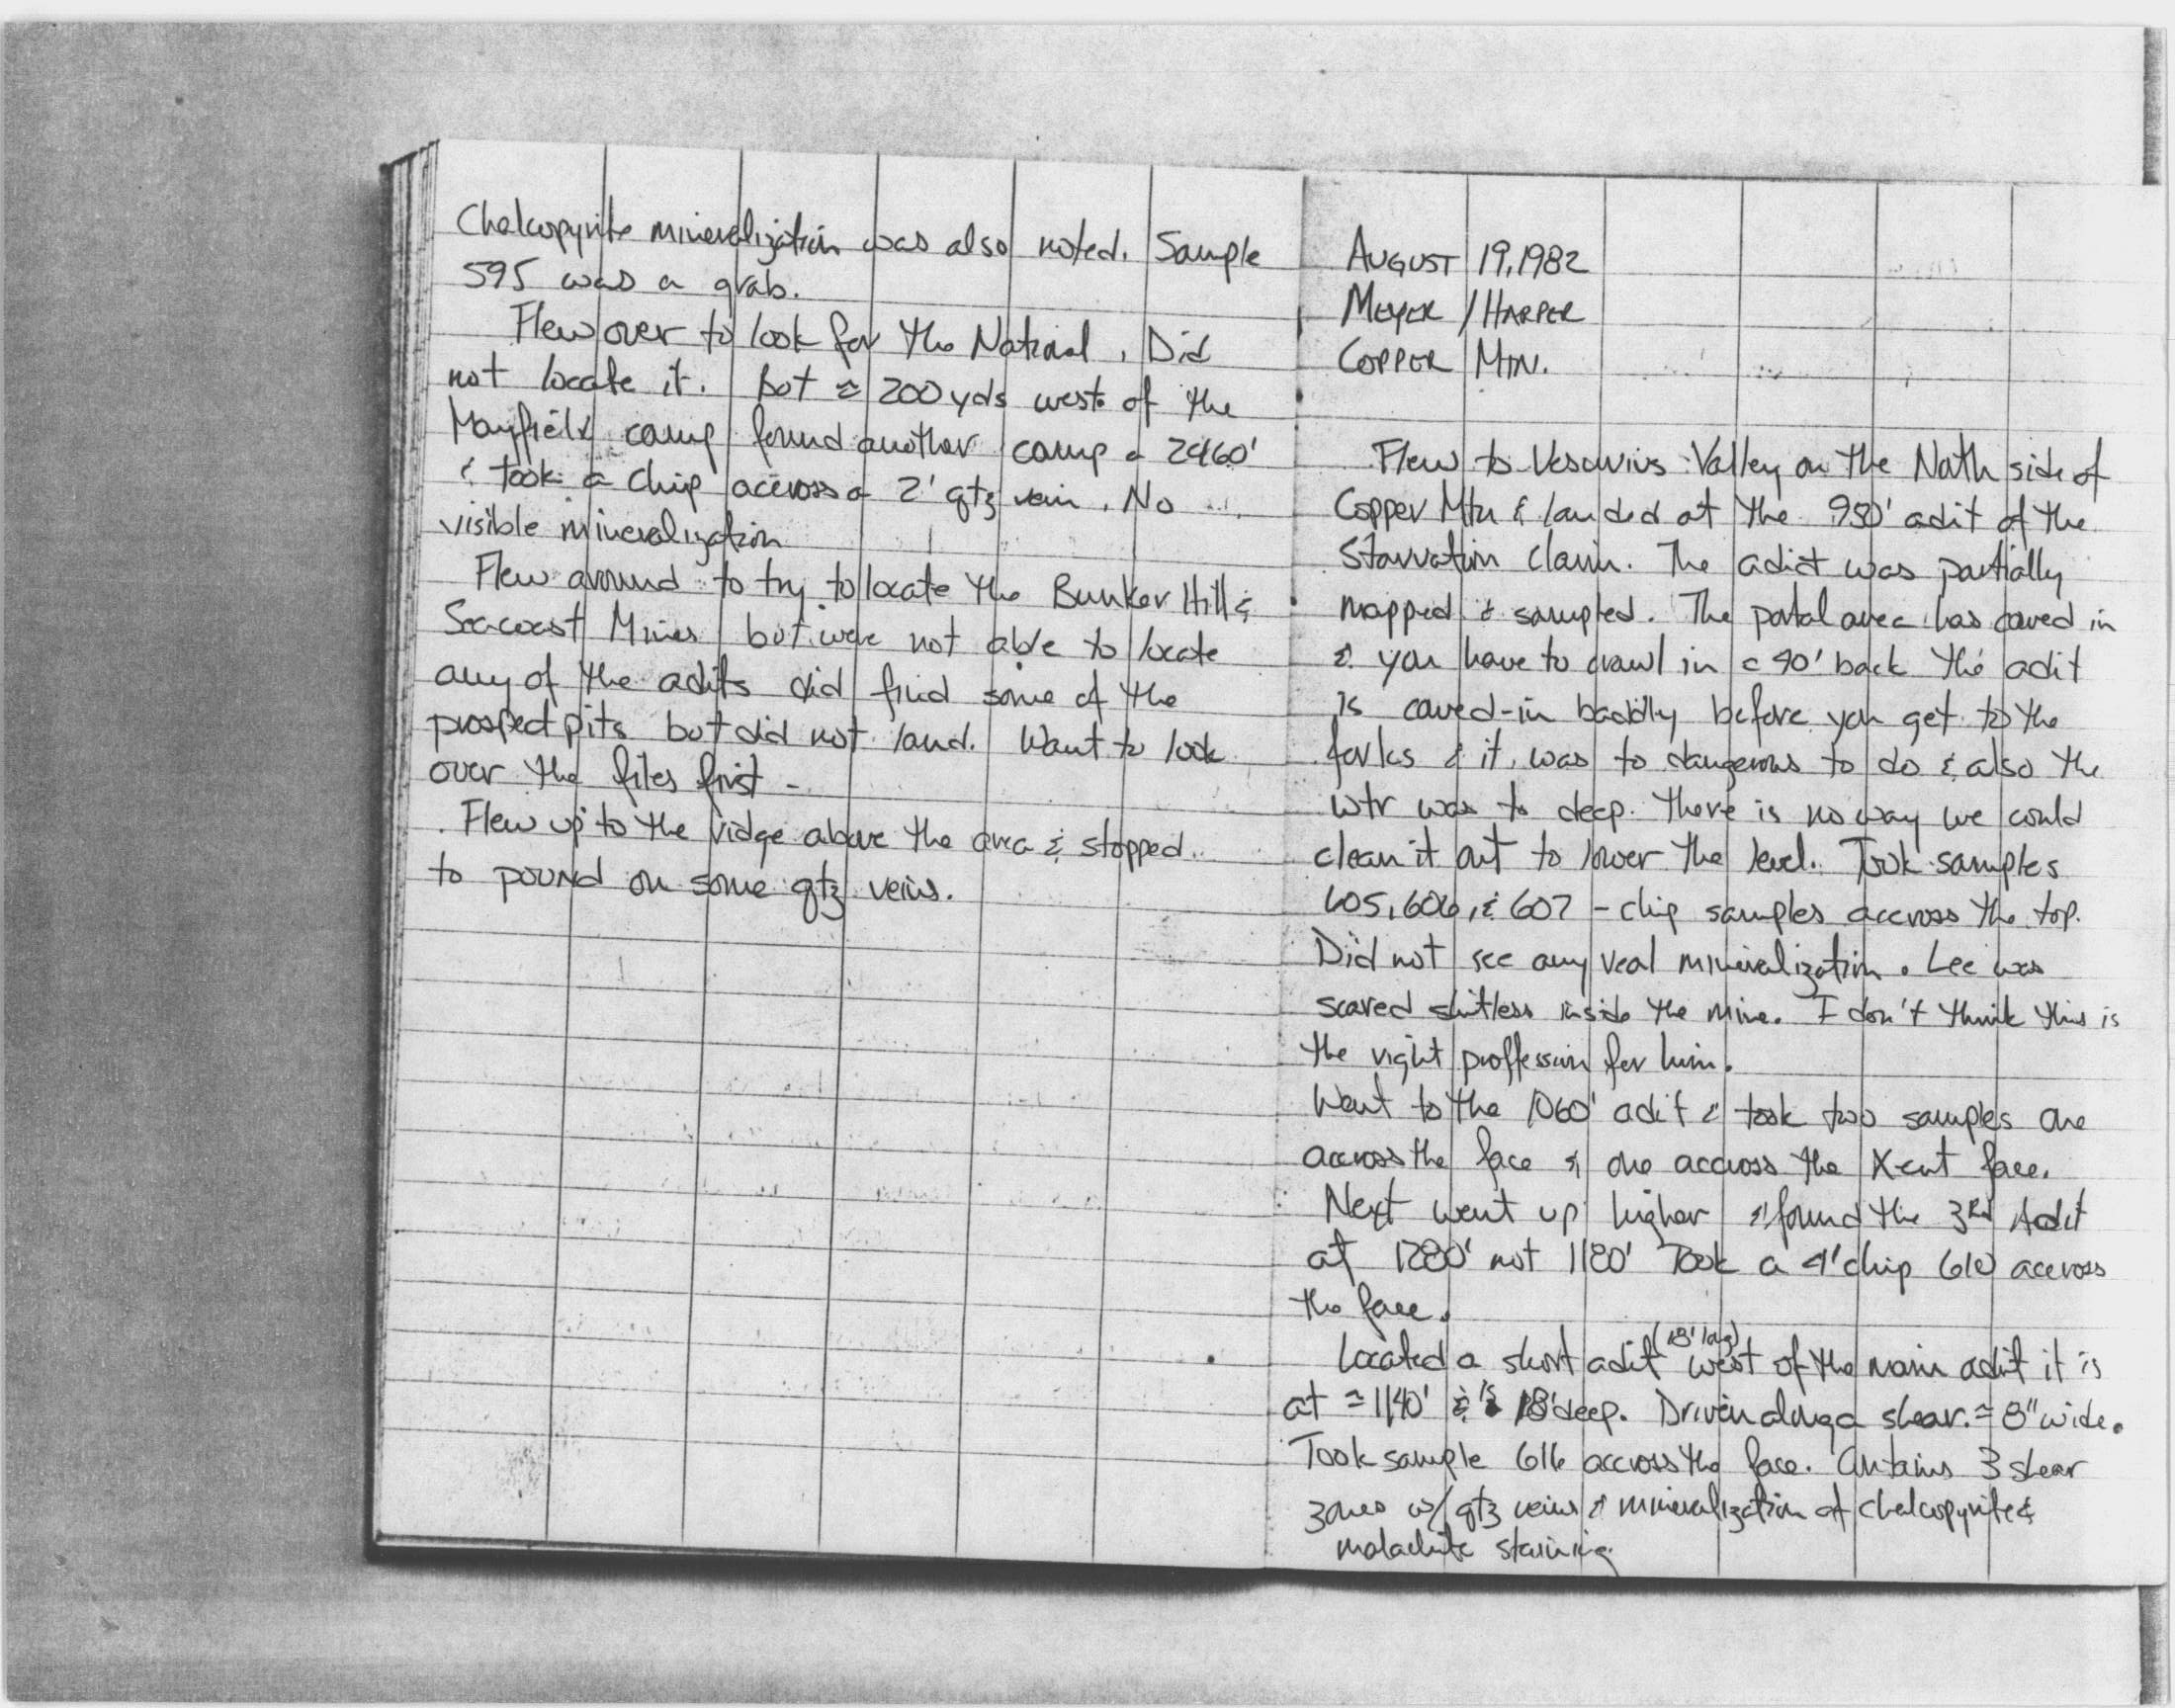 Chalcopyrite mineralization was also noted. Sample
595 was a grab.
Flew over to look for the National. Did
not locate it. But ≈ 200 yds west of the
Mayfield camp found another camp @ 2460'
& took a chip accross a 2' qtz vein. No
visible mineralization
Flew around to try to locate the Bunker Hill &
Seacoast Mines but were not able to locate
any of the adits did find some of the
prospect pits but did not land. Want to look
over the files first -
Flew up to the ridge above the area & stopped
to pound on some qtz veins.
AUGUST 19, 1982
MEYER / HARPER
COPPER MTN.
Flew to Vesuvius Valley on the Noth side of
Copper Mtn & landed at the 950' adit of the
Starvation Claim. The adit was partially
mapped & sampled. The portal area has caved in
& you have to crawl in @ 40' back the adit
is caved-in baddly before you get to the
forks & it was to dangerous to do & also the
wtr was to deep. There is no way we could
clean it out to lower the level. Took samples
605, 606, & 607 - chip samples accross the top.
Did not see any real mineralization. Lee was
scared shitless inside the mine. I don't think this is
the right proffession for him.
Went to the 1060' adit & took two samples one
accross the face & one accross the X-cut face.
Next went up higher & found the 3RD Adit
at 1280' not 1180' Took a 4' chip 610 accross
the face.
(18' long)
Located a short adit west of the main adit it is
at ≈ 1140' & is 18' deep. Driven along a shear ≈ 8" wide.
Took sample 616 accross the face. Contains 3 shear
zones w/ qtz veins & mineralization of chalcopyrite &
malachite staining